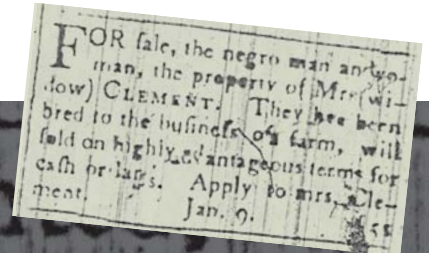 FOR ſale, the negro man and wo-
man, the property of Mrs. (wi-
dow) CLEMENT. They has been
bred to the buſineſs of a farm, will
ſold on highly advantageous terms for
caſh or
Apply to mrs. Cle-
ment. Jan. 9. 58